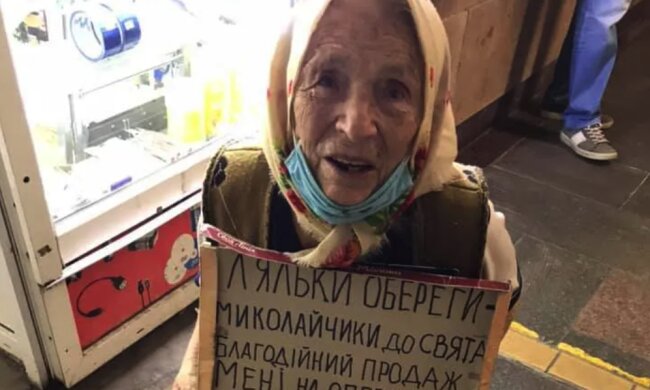 ЛЯЛЬКИ ОБЕРЕГИ -
МИКОЛАЙЧИКИ, ДО СВЯТА
БЛАГОДІЙНИЙ ПРОДАЖ
МЕНІ НА